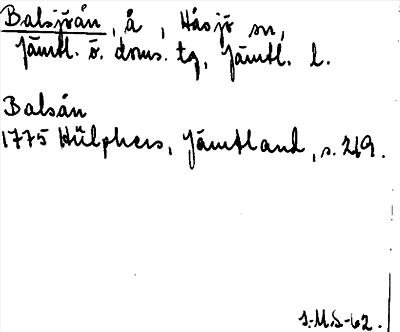 Balsjöån, å, Håsjö sn,
Jämtl. ö. doms. tg, Jämtl. l.
Balsån
1775 Hülphers, Jämtland, s. 219.
J.M.S-62.